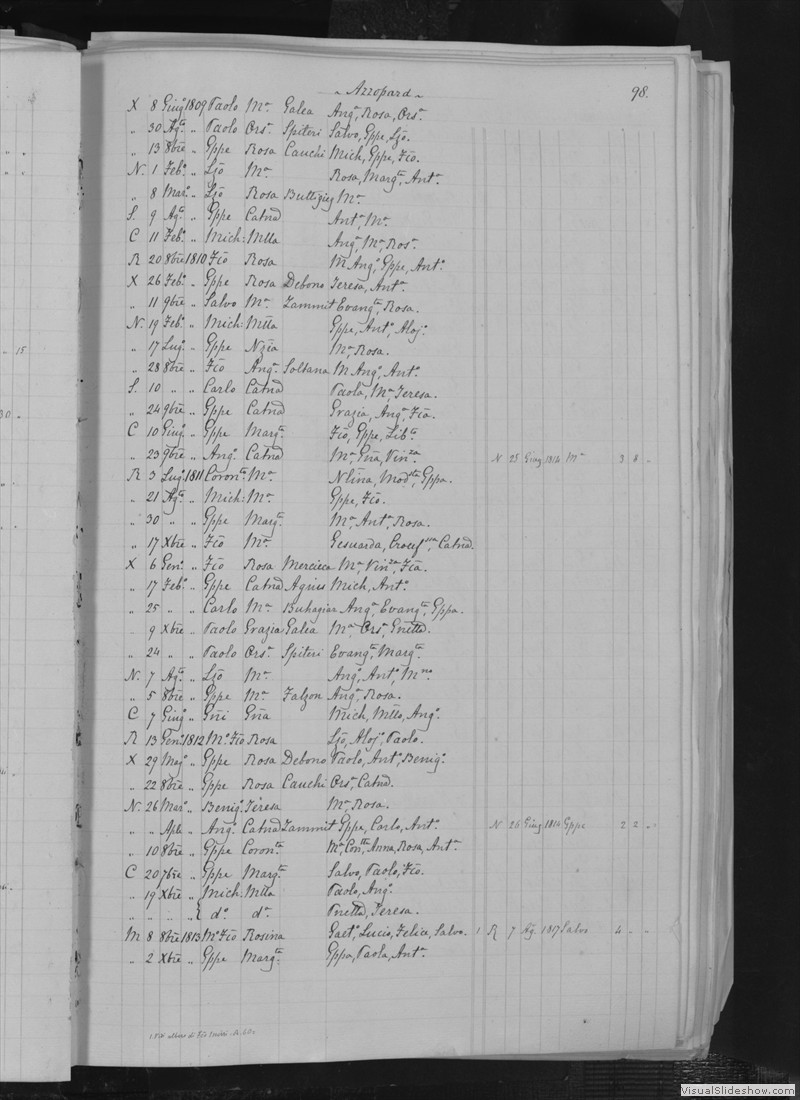 ~ Azzopard ~ 98.
X 8 Giugº 1809 Paolo Mª Galea Angª, Rosa, Orsª.
„ 30 Agtº „ Paolo Orsª Spiteri Salvo, Gppe, Ljo.
„ 13 8bre „ Gppe Rosa Cauchi Mich, Gppe, Fco.
N. 1 Febº „ Ljo Mª Rosa, Margta, Antª.
„ 8 Marº „ Ljo Rosa Buttigieg Mª.
S. 9 Agtº „ Gppe Catna Antª, Mª.
C 11 Febº „ Mich: Mtta Angª, Mª, Rosª.
R 20 8bre 1810 Fco Rosa M Angº, Gppe, Antº.
X 26 Febº „ Gppe Rosa Debono Teresa, Antª.
„ 11 9bre „ Salvo Mª Zammit Evangta, Rosa.
N. 19 Febº „ Mich: Mtta Gppe, Antº, Alojº.
„ 17 Lugº „ Gppe Nzia Mª, Rosa.
„ 28 8bre „ Fco Angª Soltana M Angº, Antº.
S. 10 „ „ Carlo Catna Paola, Mª, Teresa.
„ 24 9bre „ Gppe Catna Grazia, Angª, Fca.
C 10 Giugº „ Gppe Margta Fco, Gppe, Libta
„ 23 9bre „ Angº Catna Mª, Gña, Vinza N 25 Giug 1814 Mª 3 8 „
R 3 Lugº 1811 Coronto Mª Nlina, Modsta, Gppa.
„ 21 Agtº „ Mich: Mª Gppe, Fco.
„ 30 „ „ Gppe Margta Mª, Antª, Rosa.
„ 17 Xbre „ Fco Mª Gesuarda, Catna.
X 6 Genº „ Fco Rosa Mercieca Mª, Vinza, Fca.
„ 17 Febº „ Gppe Catna Agius Mich, Antº.
„ 25 „ „ Carlo Mª Buhagiar Angª, Evangta, Gppa.
9 Xbre „ Paolo Grazia Galea Mª, Orsª, Gnetta.
„ 24 „ Paolo Orsª Spiteri Evangta, Margta.
N. 7 Agtº „ Ljo Mª Angº, Antº, Mno
„ 5 8bre „ Gppe Mª Falzon Angª, Rosa.
C 7 Giugº „ Gñi Gña Mich, Mtto, Angº.
R 13 Genº 1812 Mº Fco Rosa Ljo, Alojº, Paolo.
X 29 Magº „ Gppe Rosa Debono Paolo, Antº, Benigº.
„ 22 8bre „ Gppe Rosa Cauchi Orsª, Catna.
N. 26 Marº „ Benigº Teresa Mª, Rosa.
„ „ Aple „ Angº Catna Zammit Gppe, Carlo, Antº. N 26 Giug 1814 Gppe 2 2 „
„ 10 8bre „ Gppe Coronta Mª, Contta, Anna, Rosa, Antª
C 20 7bre „ Gppe Margta Salvo, Paolo, Fco.
„ 19 Xbre „ Mich: Mtta Paolo, Angº.
„ „ „ „ { dº. dª. Pnetta, Teresa.
M 8 8bre 1813 Mº Fco Rosina Gaetº, Lucio, Felice, Salvo. 1 R 7 Ag 1817 Salvo 4 „ „
„ 2 Xbre „ Gppe Margta Gppa, Paola, Antª
VisualSlideshow.com